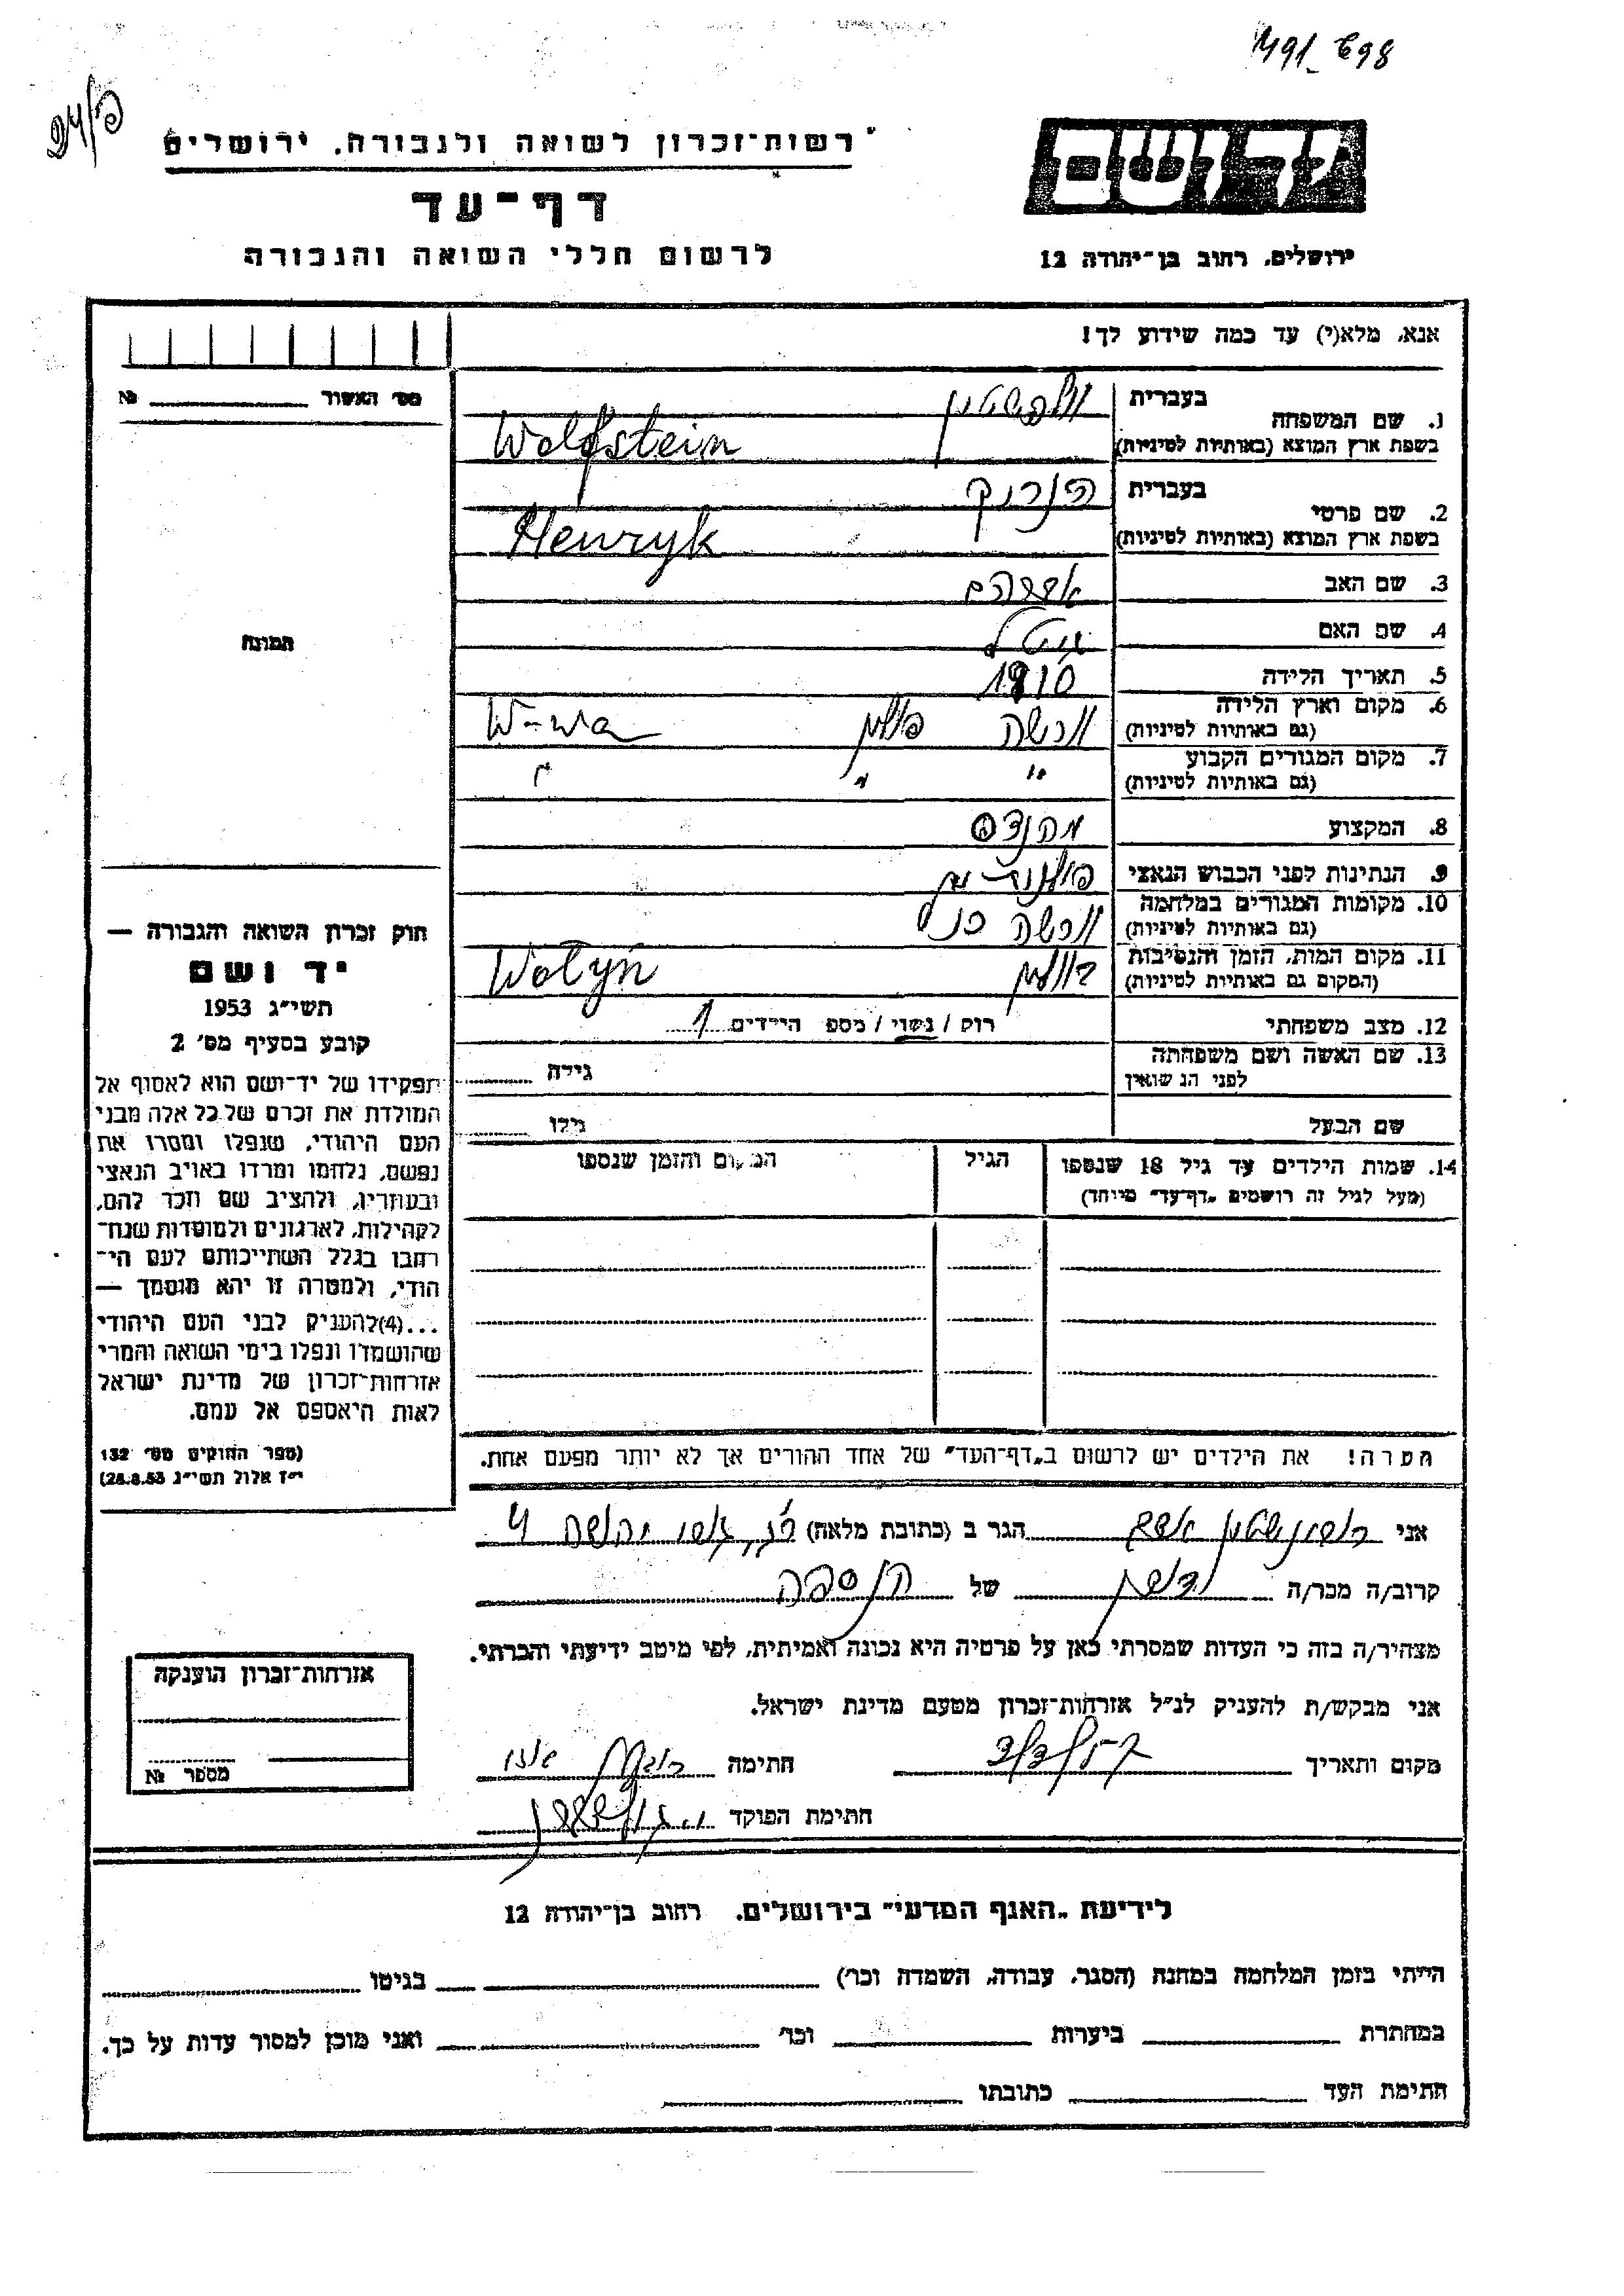 רשות־זכרון לשואה ולגבורה, ירושלים
דף־עד
לרשום חללי השואה והגבורה
ירושלים, רחוב בן־יהודה 12
אנא, מלא(י) עד כמה שידוע לך!
מס׳ האשור № 
1. שם המשפחה בעברית וולפשטיין
בשפת ארץ המוצא (באותיות לטיניות) Wolfstein
2. שם פרטי בעברית הנריק
בשפת ארץ המוצא (באותיות לטיניות) Henryk
3. שם האב אברהם
4. שם האם גיטל
5. תאריך הלידה 1910
6. מקום וארץ הלידה (גם באותיות לטיניות) ורשה פולין W-wa
7. מקום המגורים הקבוע (גם באותיות לטיניות) " " "
8. המקצוע מהנדס
9. הנתינות לפני הכבוש הנאצי
10. מקומות המגורים במלחמה (גם באותיות לטיניות) ורשה
11. מקום המות, הזמן והנסיבות (המקום גם באותיות לטיניות) ווולין Wolyń
12. מצב משפחתי רוק / נשוי / מספ הילדים 1
13. שם האשה ושם משפחתה לפני הנשואין גילה
שם הבעל גילו
14. שמות הילדים עד גיל 18 שנספו הגיל המקום והזמן שנספו
(מעל לגיל זה רושמים „דף־עד״ מיוחד)
הערה! את הילדים יש לרשום ב„דף־העד״ של אחד ההורים אך לא יותר מפעם אחת.
התמונה
חוק זכרון השואה והגבורה —
יד ושם
תשי״ג 1953
קובע בסעיף מס׳ 2
תפקידו של יד־ושם הוא לאסוף אל
המולדת את זכרם של כל אלה מבני
העם היהודי, שנפלו ומסרו את
נפשם, נלחמו ומרדו באויב הנאצי
ובעוזריו, ולהציב שם וזכר להם,
לקהילות, לארגונים ולמוסדות שנח־
רבו בגלל השתייכותם לעם הי־
הודי, ולמטרה זו יהא מוסמך —
...(4) להעניק לבני העם היהודי
שהושמדו ונפלו בימי השואה והמרי
אזרחות־זכרון של מדינת ישראל
לאות היאספם אל עמם.
(ספר החוקים מס׳ 132
י״ז אלול תשי״ג 28.8.53)
אני הגר ב (כתובת מלאה)
קרוב/ה מכר/ה של הנספה
מצהיר/ה בזה כי העדות שמסרתי כאן על פרטיה היא נכונה ואמיתית, לפי מיטב ידיעתי והכרתי.
אני מבקש/ת להעניק לנ״ל אזרחות־זכרון מטעם מדינת ישראל.
מקום ותאריך חתימה
חתימת הפוקד
אזרחות־זכרון הוענקה
מספר №
לידיעת „האגף המדעי״ בירושלים, רחוב בן־יהודה 12
הייתי בזמן המלחמה במחנה (הסגר, עבודה, השמדה וכר׳) בגיטו
במחתרת ביערות וכר׳ ואני מוכן למסור עדות על כך.
חתימת העד כתובתו